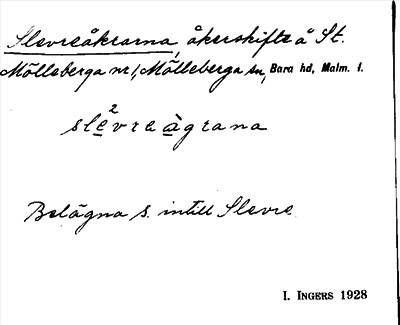 Slevreåkrarna, åkerskifte å St.
Mölleberga nr 1, Mölleberga sn, Bara hd, Malm. l.
sle²vreàgrana
Belägna s. intill Slevre
I. INGERS 1928